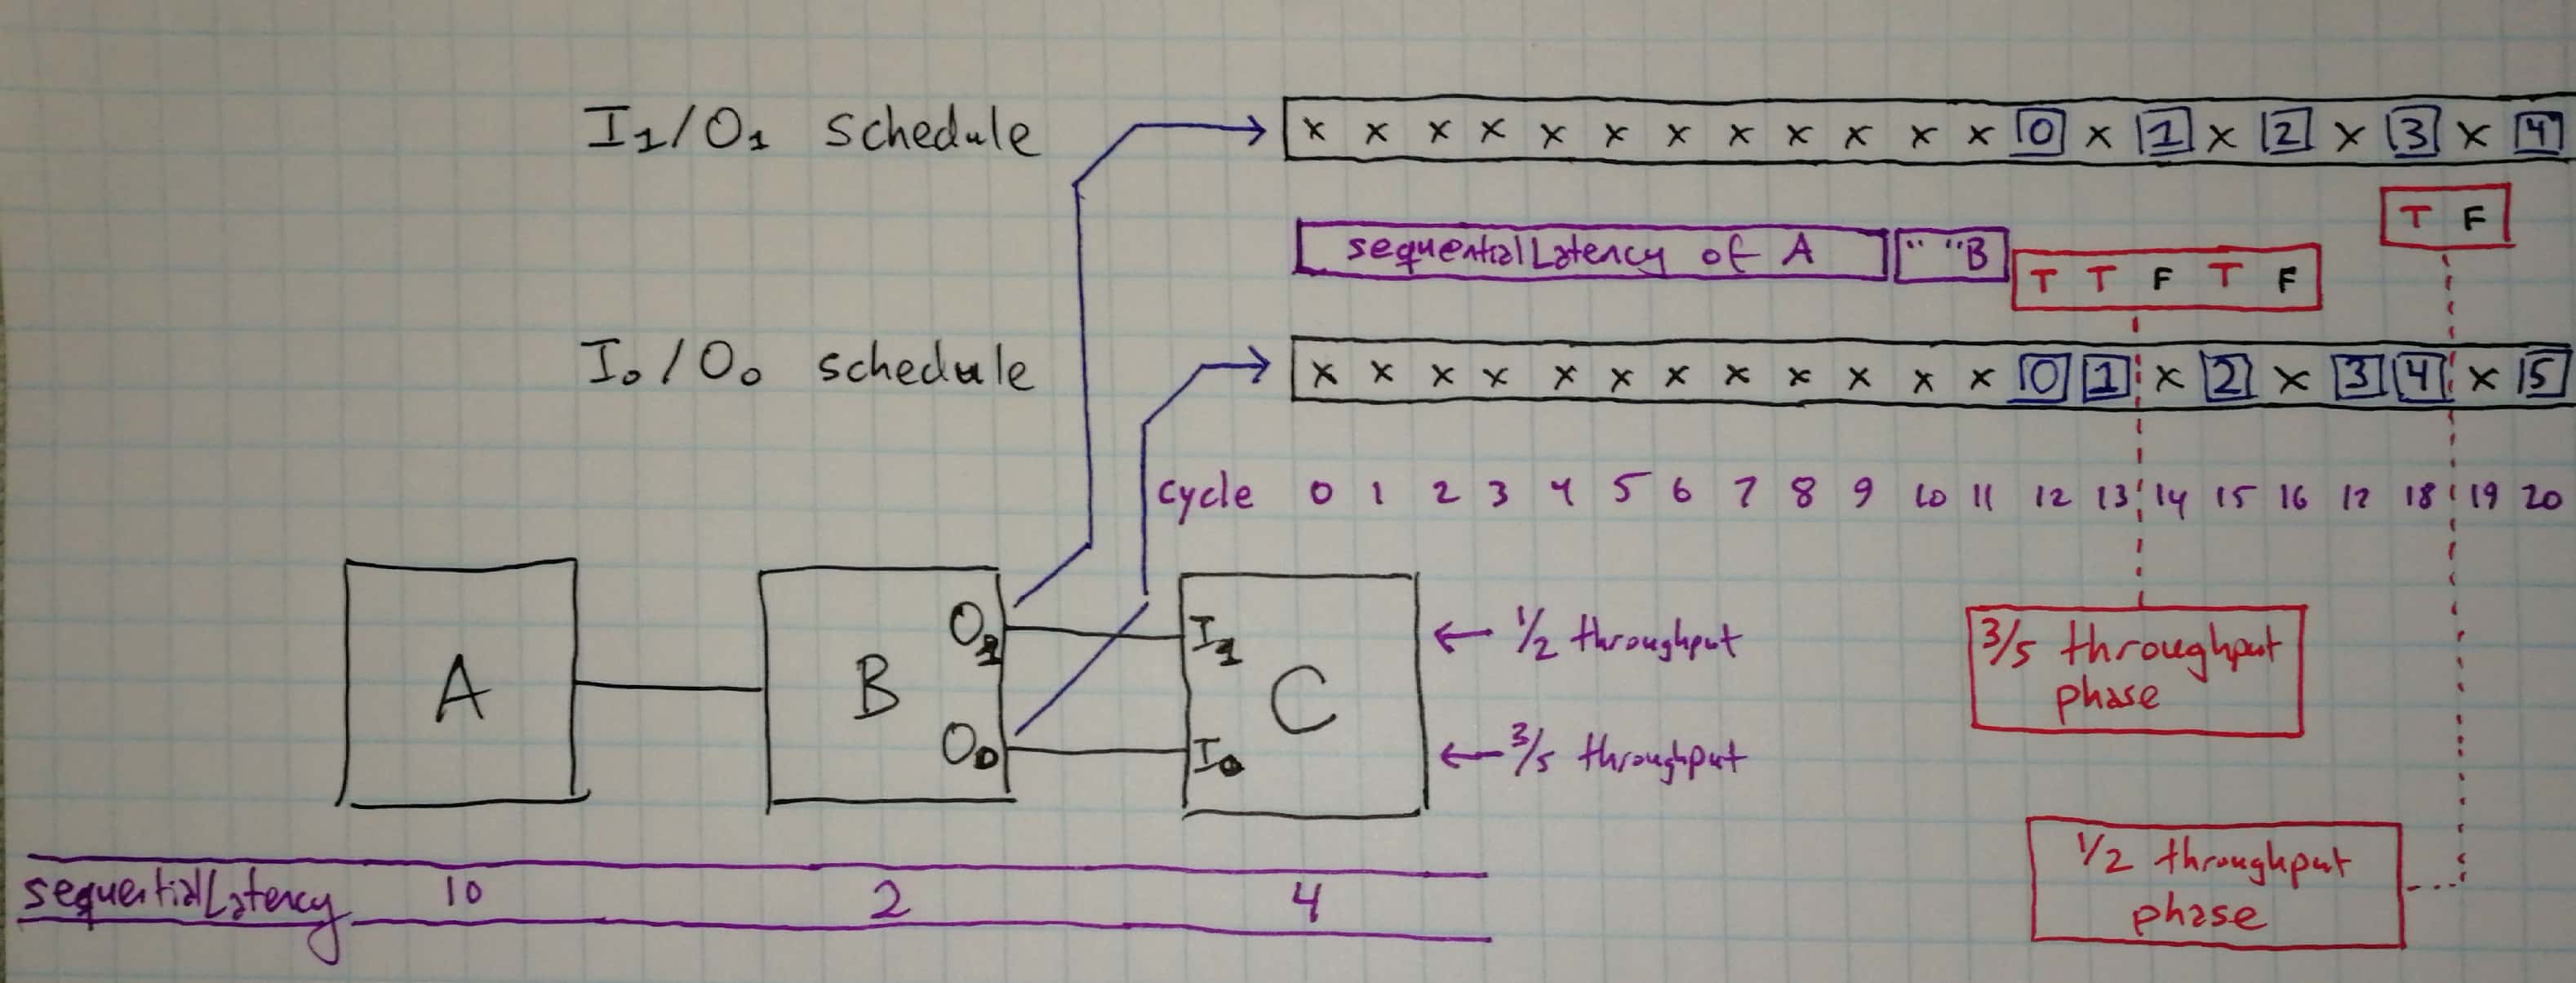 I₁/O₁ schedule
x x x x x x x x x x x x 0 x 1 x 2 x 3 x 4
T F
sequentialLatency of A " "B
T T F T F
I₀/O₀ schedule
x x x x x x x x x x x x 0 1 x 2 x 3 4 x 5
cycle 0 1 2 3 4 5 6 7 8 9 10 11 12 13 14 15 16 17 18 19 20
A
B
O₁
O₀
I₁
C
I₀
← 1/2 throughput
← 3/5 throughput
3/5 throughput
phase
1/2 throughput
phase
sequentialLatency 10 2 4